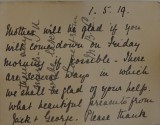 1.5.19.
Mother will be glad if you
will come down on Friday
morning if possible. There
are several ways in which
we shall be glad of your help.
What beautiful presents from
Jack & George. Please thank